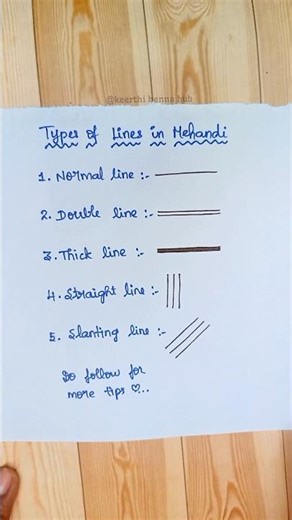 @keerthi henna hub
Types of Lines in Mehandi
1. Normal line :-
2. Double line :-
3. Thick line :-
4. Straight line :-
5. Slanting line :-
Do follow for
more tips ♡..